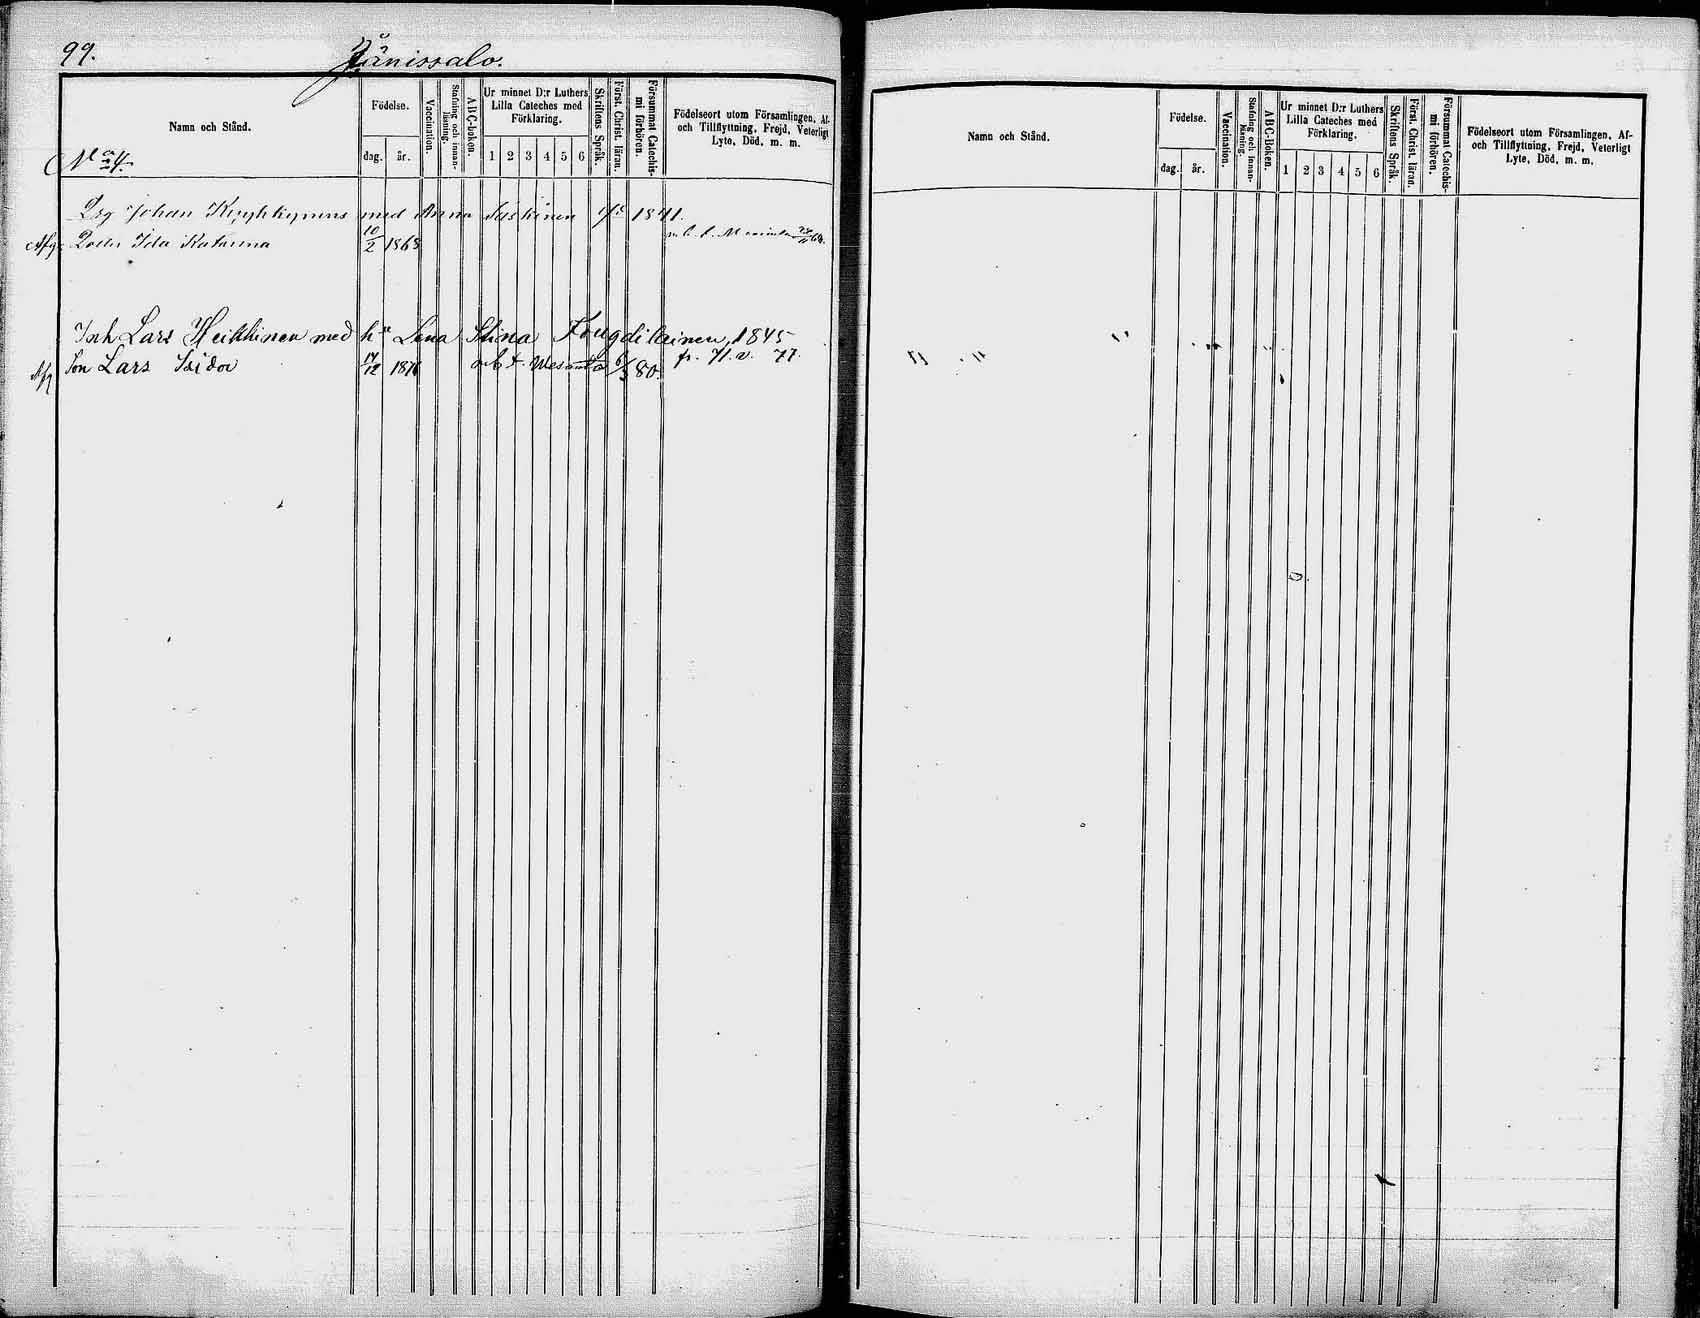 99.
Jänissalo.
Namn och Stånd.
Födelse.
dag. år.
Vaccination.
Stafning och innanläsning.
ABC-boken.
Ur minnet D:r Luthers Lilla Cateches med Förklaring.
1 2 3 4 5 6
Skriftens Språk.
Först. Christ. läran.
Försummat Catechismi förhören.
Födelseort utom Församlingen, Af- och Tillflyttning, Frejd, Veterligt Lyte, Död, m. m.
N:o 4.
Johan med Anna 1841.
Dotter Ida Katarina 10/2 1868
Inh Lars Heikkinen med hu Lena Stina 1845
Son Lars Isidor 17/12 1876 80. fr. 71. v. 77.
Namn och Stånd.
Födelse.
dag. år.
Vaccination.
Stafning och innanläsning.
ABC-Boken.
Ur minnet D:r Luthers Lilla Cateches med Förklaring.
1 2 3 4 5 6
Skriftens Språk.
Först. Christ. läran.
Försummat Catechismi förhören.
Födelseort utom Församlingen, Af- och Tillflyttning, Frejd, Veterligt Lyte, Död, m. m.